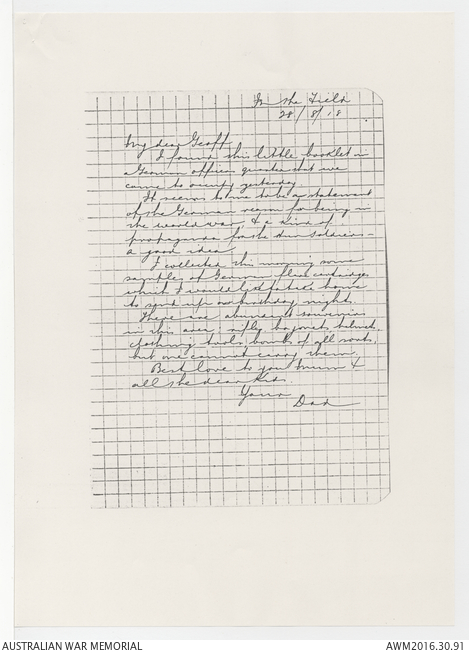 In the Field
28/8/18
My dear Geoff
I found this little booklet in
a German officers quarters that we
came to occupy yesterday.
It seems to me to be a statement
of the German reason for being in
the world war, & a kind of
propaganda for the their soldiers -
a good idea.
I collected this morning some
samples of German flare cartridges
which I would like to take home
to send up on birthday nights.
There are abundant souvenirs
in this area; rifles bayonets helmets
clothing tools, bombs of all sorts,
but one cannot carry them.
Best love to you mum &
all the dear kids.
Your
Dad
AUSTRALIAN WAR MEMORIAL
AWM2016.30.91